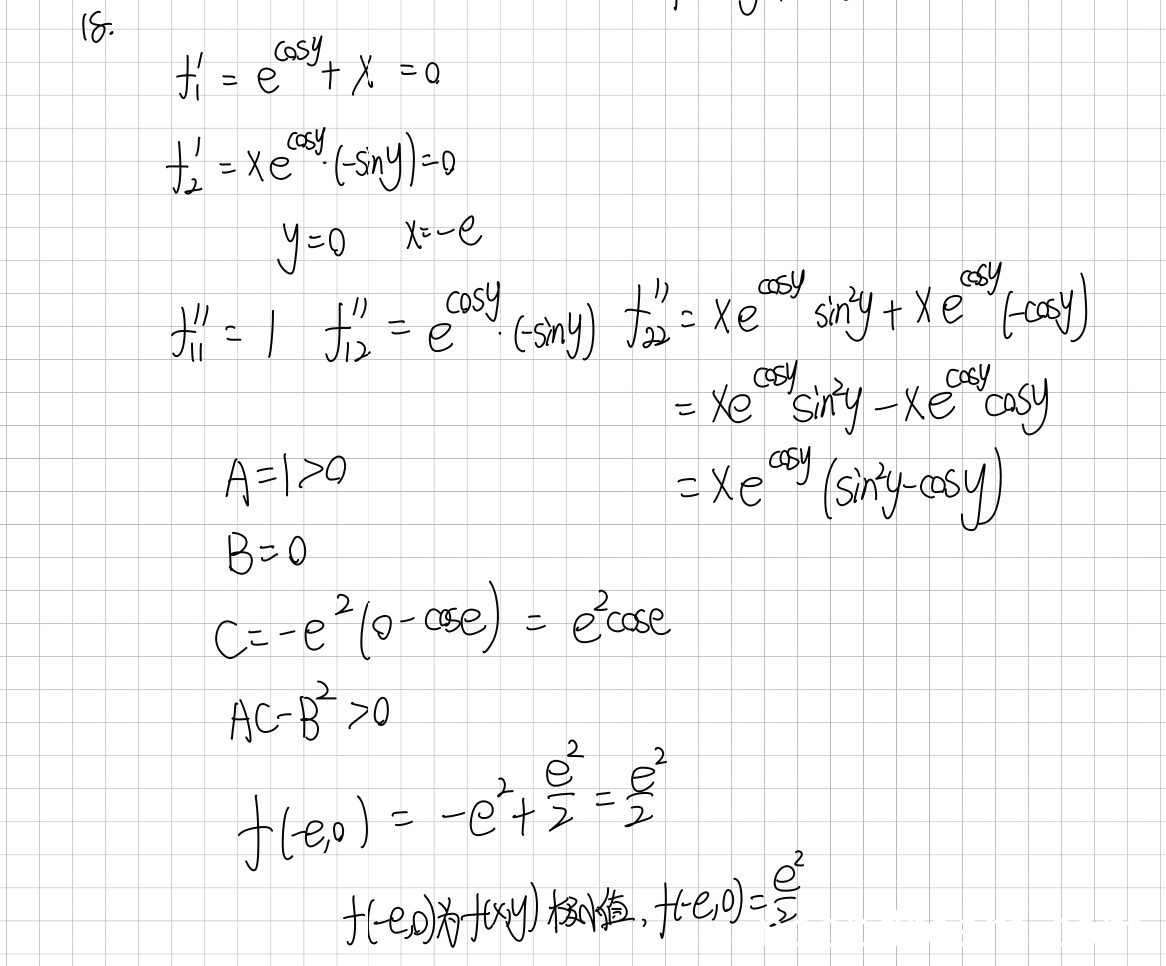 18.
f₁' = e^{cosy} + x = 0
f₂' = xe^{cosy}·(-siny) = 0
y=0 x=-e
f₁₁'' = 1 f₁₂'' = e^{cosy}·(-siny) f₂₂'' = xe^{cosy} sin²y + xe^{cosy}(-cosy)
= xe^{cosy}sin²y - xe^{cosy}cosy
= xe^{cosy}(sin²y-cosy)
A=1>0
B=0
C=-e²(0-cose) = e²cose
AC-B²>0
f(-e,0) = -e²+e²/2 = e²/2
f(-e,0)为f(x,y)极小值,f(-e,0)=e²/2